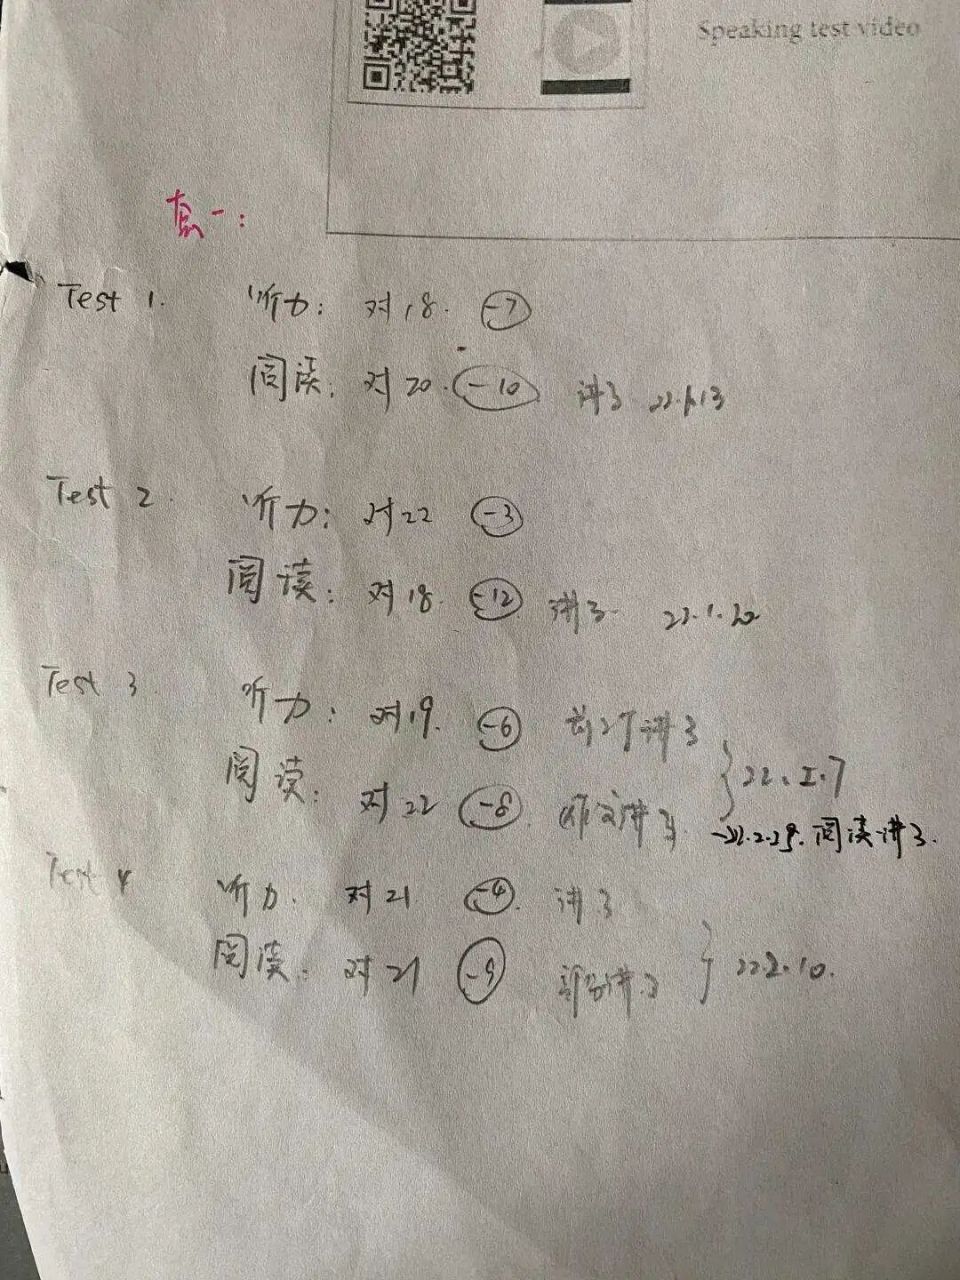 Speaking test video
套一:
Test 1. 听力: 对18. -7
阅读: 对20. -10 讲了 22.1.13
Test 2. 听力: 对22 -3
阅读: 对18. -12 讲了 22.1.20
Test 3. 听力: 对19. -6 讲了
阅读: 对22 -8 作文讲了 22.2.7
阅读讲了.
Test 4 听力. 对21 -4. 讲了
阅读. 对21 -9 部分讲了 22.2.10.